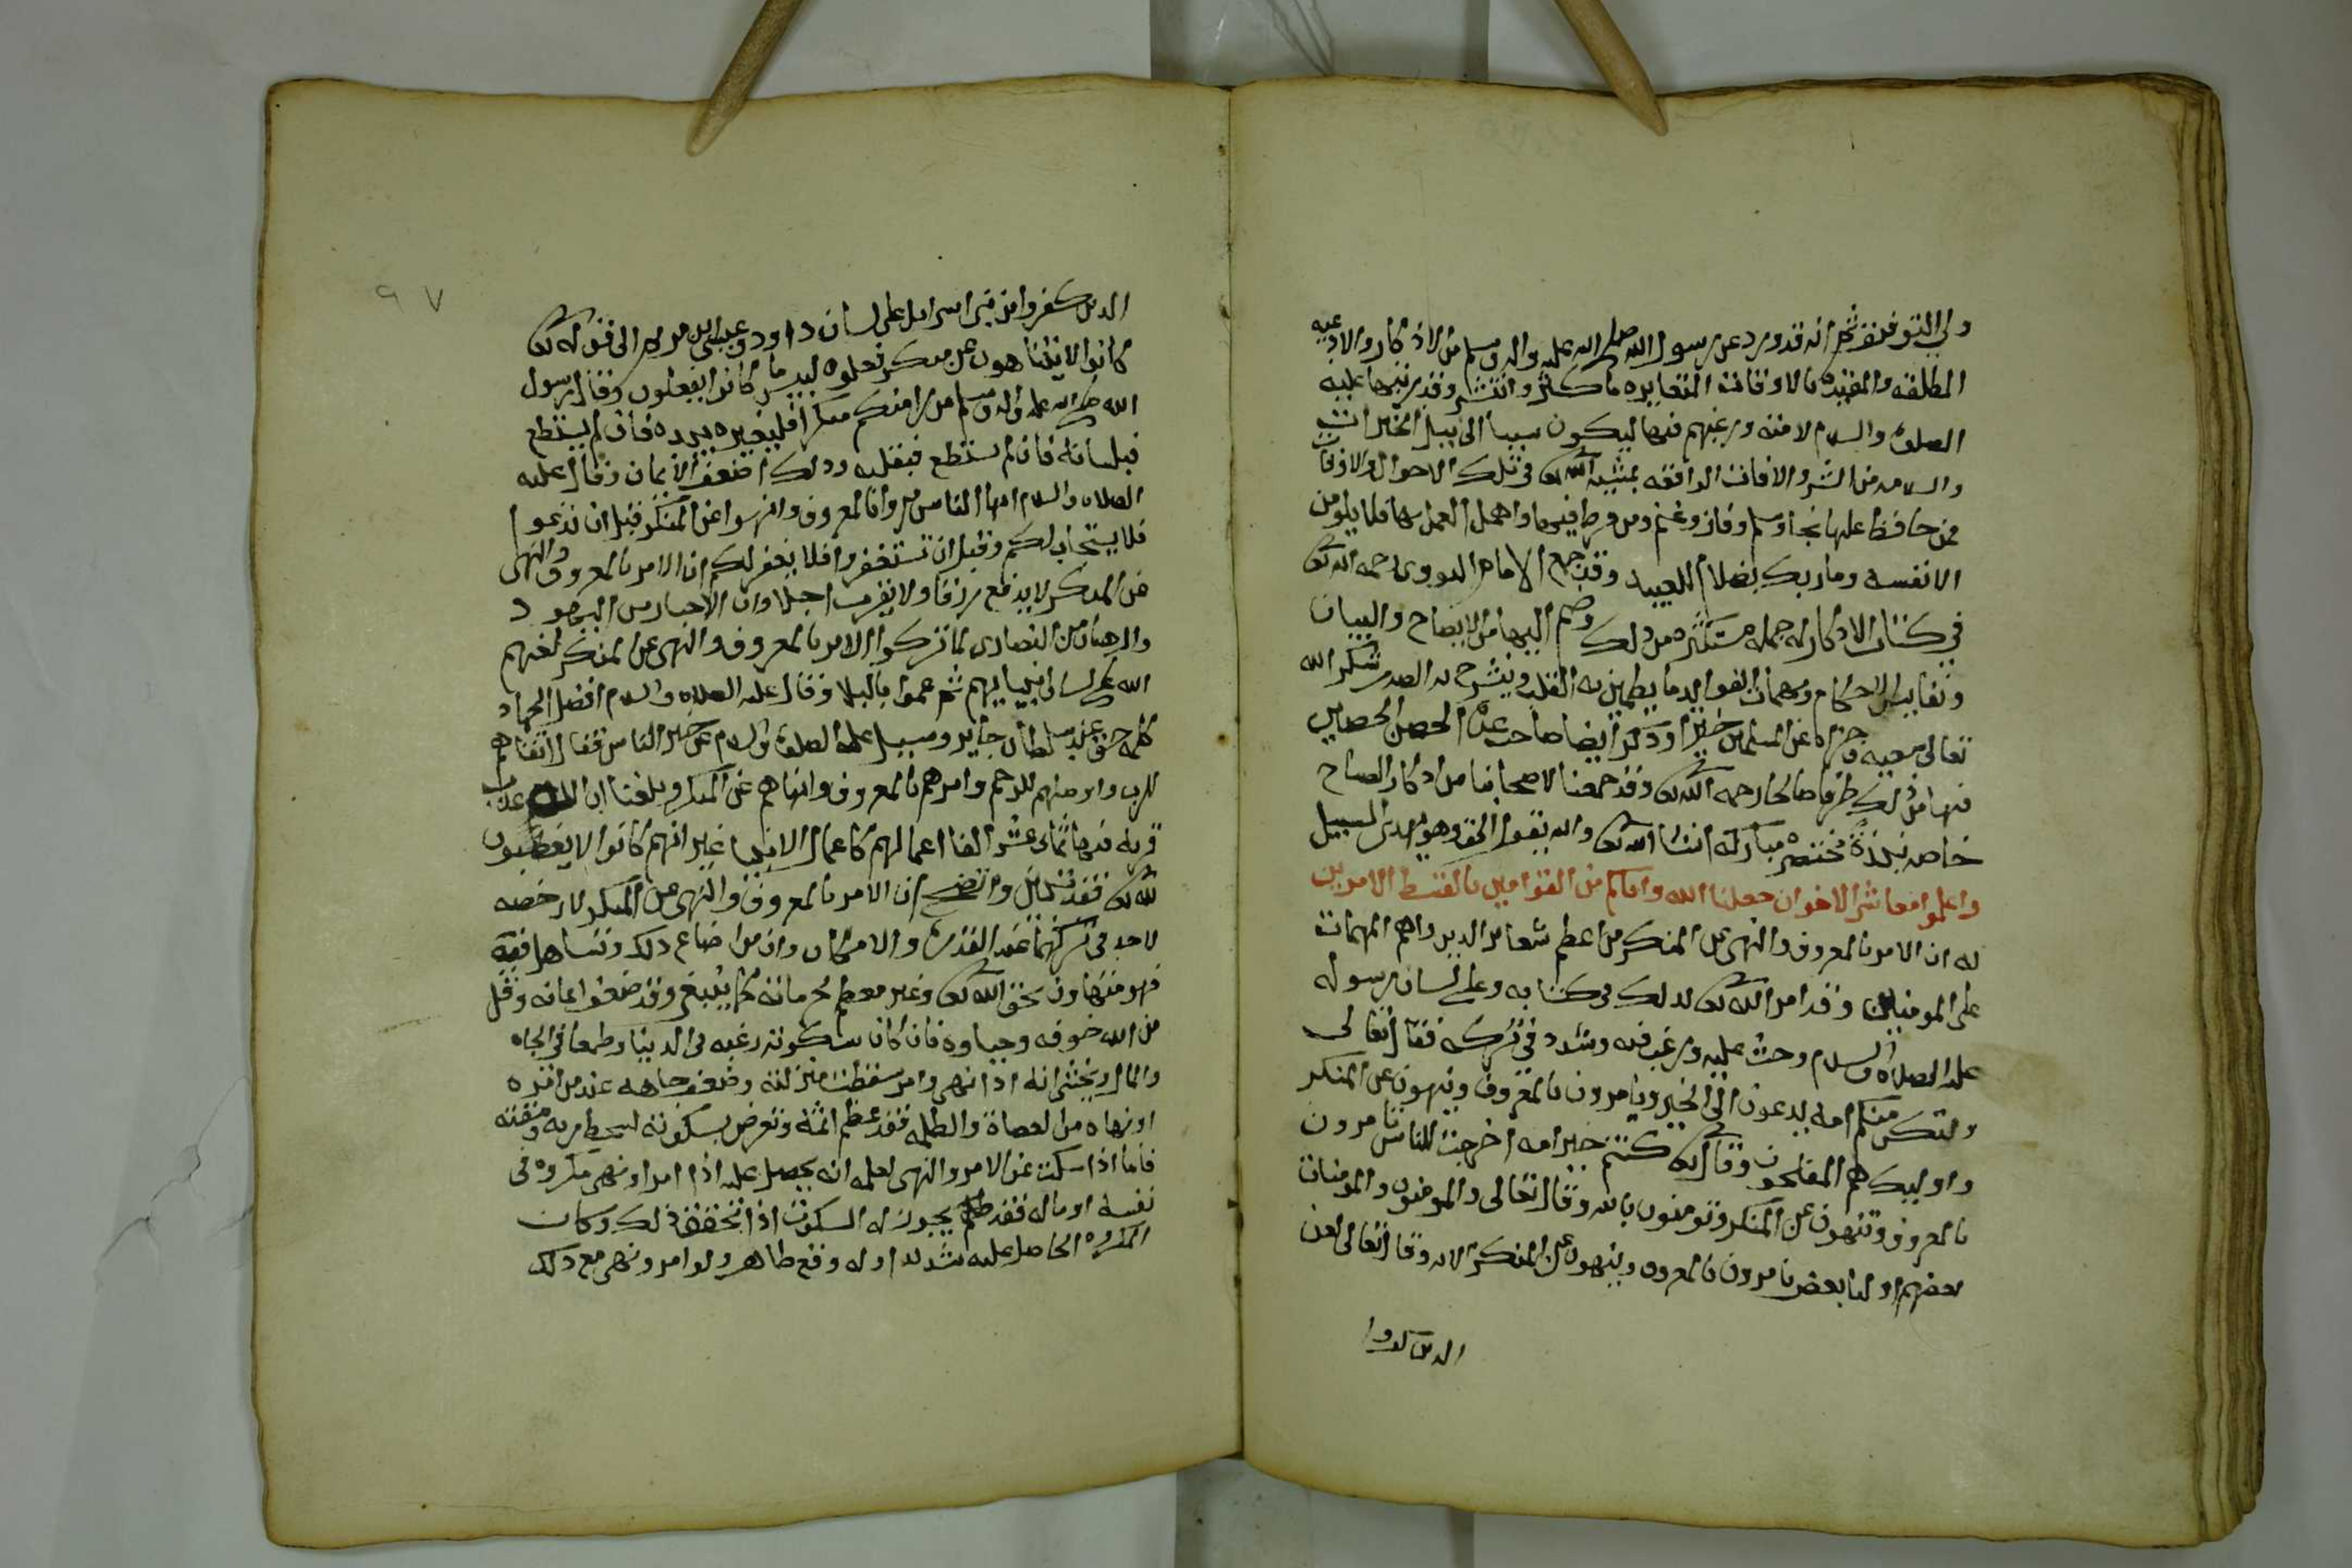 ولي التوفيق ثم انه قد ورد عن رسول الله صلى الله عليه واله وسلم من الاذكار والادعيه
المطلقه والمقيده بالاوقات المتغايره ما كثر وانتشر وقد رتبها عليه
الصلاة والسلام لامته ورغبهم فيها ليكون سببا الى نيل الخيرات
والسلامه من الشر والافات الواقعه بمشيئة الله تعالى في تلك الاحوال والاوقات
فمن حافظ عليها نجا وسلم وفاز وغنم ومن فرط فيها واهمل العمل بها فلا يلومن
الا نفسه وما ربك بظلام للعبيد وقد جمع الامام النووي رحمه الله تعالى
في كتاب الاذكار له جمله مستكثره من ذلك وضم اليها من الايضاح والبيان
ونفايس الاحكام ومهمات الفوايد ما يطمين به القلب وينشرح له الصدر شكر الله
تعالى سعيه وجزاه عن المسلمين خيرا وذكر ايضا صاحب عدة الحصن الحصين
فيها من ذلك طرفا صالحا رحمه الله تعالى وقد جمعنا لاصحابنا من اذكار الصباح
خاصه نبذة مختصره مباركه انشا الله تعالى والله يقول الحق وهو يهدي السبيل
واعلموا معاشر الاخوان جعلنا الله واياكم من القوامين بالقسط الامرين
له ان الامر بالمعروف والنهي عن المنكر من اعظم شعاير الدين واهم المهمات
على المومنين وقد امر الله تعالى بذلك في كتابه وعلى لسان رسوله
عليه الصلاة والسلام وحث عليه ورغب فيه وشدد في تركه فقال تعالى
ولتكن منكم امه يدعون الى الخير ويامرون بالمعروف وينهون عن المنكر
واوليك هم المفلحون وقال تعالى كنتم خير امه اخرجت للناس تامرون
بالمعروف وتنهون عن المنكر وتومنون بالله وقال تعالى والمومنون والمومنات
بعضهم اوليا بعض يامرون بالمعروف وينهون عن المنكر الايه وقال تعالى لعن
الذين كفروا
٩٧
الذين كفروا من بني اسرايل على لسان داود وعيسى ابن مريم الى قوله تعالى
كانوا لا يتناهون عن منكر فعلوه لبيس ما كانوا يفعلون وقال رسول
الله صلى الله عليه واله وسلم من راى منكم منكرا فليغيره بيده فان لم يستطع
فبلسانه فان لم يستطع فبقلبه وذلك اضعف الايمان وقال عليه
الصلاه والسلام ايها الناس مروا بالمعروف وانهوا عن المنكر قبل ان تدعوا
فلا يستجاب لكم وقبل ان تستغفروا فلا يغفر لكم ان الامر بالمعروف والنهي
عن المنكر لا يدفع رزقا ولا يقرب اجلا وان الاحبار من اليهود
والرهبان من النصارى لما تركوا الامر بالمعروف والنهي عن المنكر لعنهم
الله على لسان انبيايهم ثم عموا بالبلا وقال عليه الصلاه والسلام افضل الجهاد
كلمة حق عند سلطان جاير وسيل عليه الصلاة والسلام عن خير الناس فقال اتقاهم
للرب واوصلهم للرحم وامرهم بالمعروف وانهاهم عن المنكر وبلغنا ان الله عذب
قريه فيها ثماني عشر الفا اعمالهم كاعمال الانبيا غير انهم كانوا لا يغضبون
لله تعالى فقد تبين واتضح ان الامر بالمعروف والنهي عن المنكر لا رخصه
لاحد في تركهما عند القدرة والامكان وان من اضاع ذلك وتساهل فيه
فهو متهاون بحق الله تعالى وغير معظم لحرماته كما ينبغي وقد ضعف ايمانه وقل
من الله خوفه وحياوه فان كان سكوته رغبه في الدنيا وطمعا في الجاه
والمال ويخشى انه اذا نهى وامر سقطت منزلته وضعف جاهه عند من امره
او نهاه من العصاة والظلمه فقد عظم اثمه وتعرض بسكوته لسخط ربه ومقته
فاما اذا سكت عن الامر والنهي لعلمه انه يحصل عليه اذا امر او نهى مكروه في
نفسه او ماله فقد يجوز له السكوت اذا تحقق ذلك وكان
المكروه الحاصل عليه شديدا وله وقع ظاهر ولو امر ونهى مع ذلك